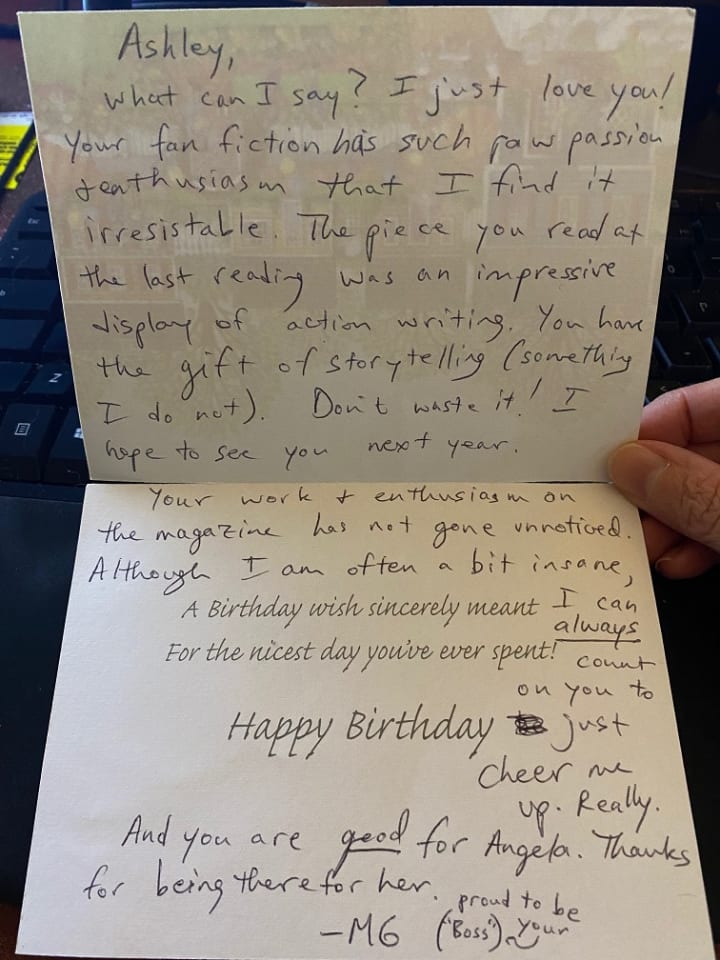 Ashley,
What can I say? I just love you!
Your fan fiction has such raw passion
& enthusiasm that I find it
irresistable. The piece you read at
the last reading was an impressive
display of action writing. You have
the gift of storytelling (something
I do not). Don't waste it! I
hope to see you next year.
Your work & enthusiasm on
the magazine has not gone unnoticed.
Although I am often a bit insane,
I can
always
count
on you to
just
cheer me
up. Really.
A Birthday wish sincerely meant
For the nicest day you've ever spent!
Happy Birthday
And you are good for Angela. Thanks
for being there for her.
proud to be
-MG ("Boss") your
Esc
Z